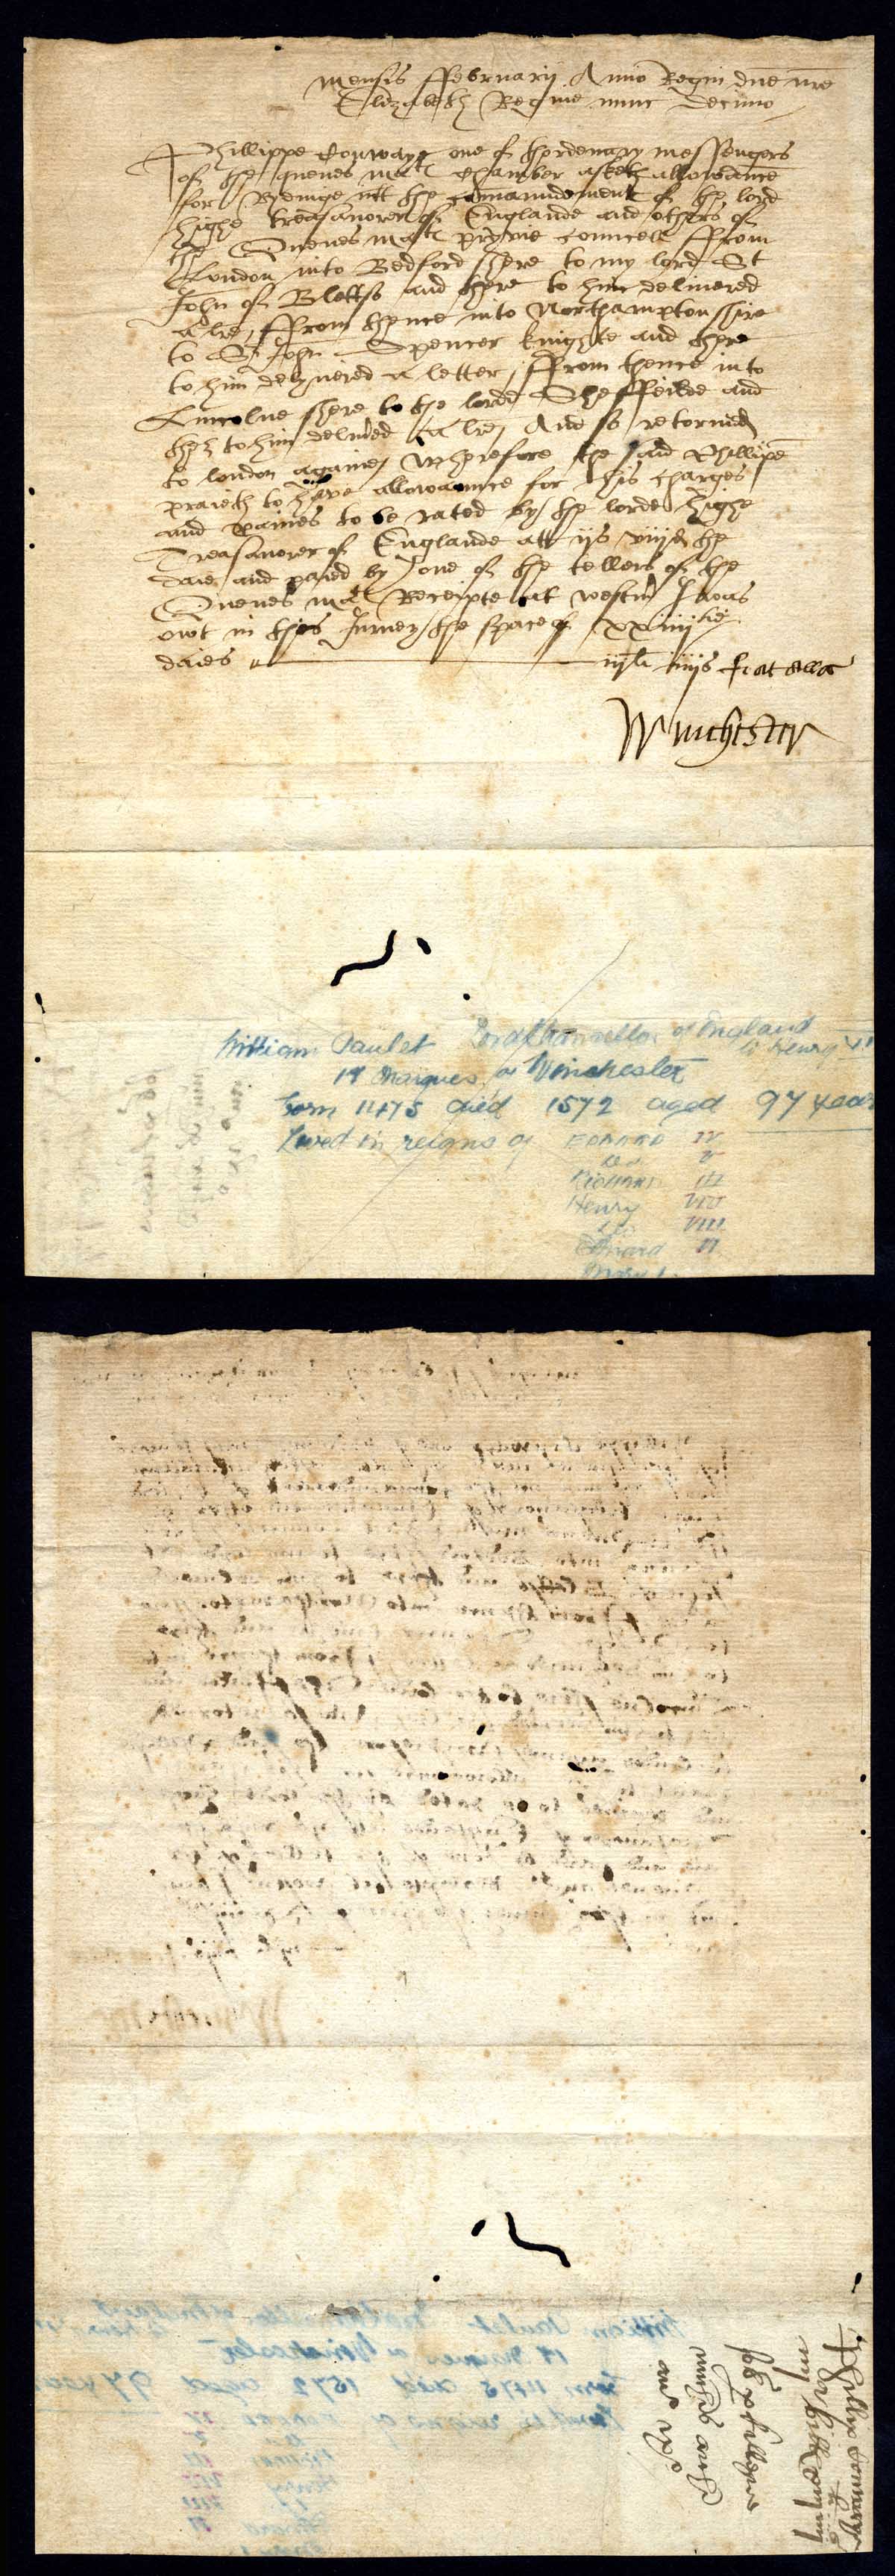 Mensis ffebruarij Anno Regin dne nre
Elizabeth Regine nunc decimo
Phillippe Conwaye one of thordenary messengers
of the quenes matis chamber asketh allowance
for Rydinge att the comaundement of the lord
highe treasaurer of Englande and others of
the Quenes matis pryvie councell ffrom
London into Bedford shere to my lord St
John of Bletsso and there to him delivered
a lre, ffrom thence into Northamptonshire
to Sr John Spencer knighte and there
to him delyvered a letter, ffrom thence into
Lincolne shere to the lorde Sheffeilde and
ther to him delivred a lre, And so retornid
to london againe, Wherefore the said Phillipe
praieth to have allowaunce for his charges
and paines to be rated by the lorde highe
Treasaurer of Englande att ijs viijd the
daie and paied by one of the tellers of the
Quenes mats Receipte at westm I was
owt in this Jurney the space of xxiiij tie
daies iijli iiijs fiat alloc
Winchester
William Paulet Lord Chancellor of England
to Henry VIII
1st Marques of Winchester
born 1475 died 1572 aged 97 years
Lived in reigns of Edward IV
do V
Richard III
Henry VII
do VIII
Edward VI
Mary I
Phillip Conwaye